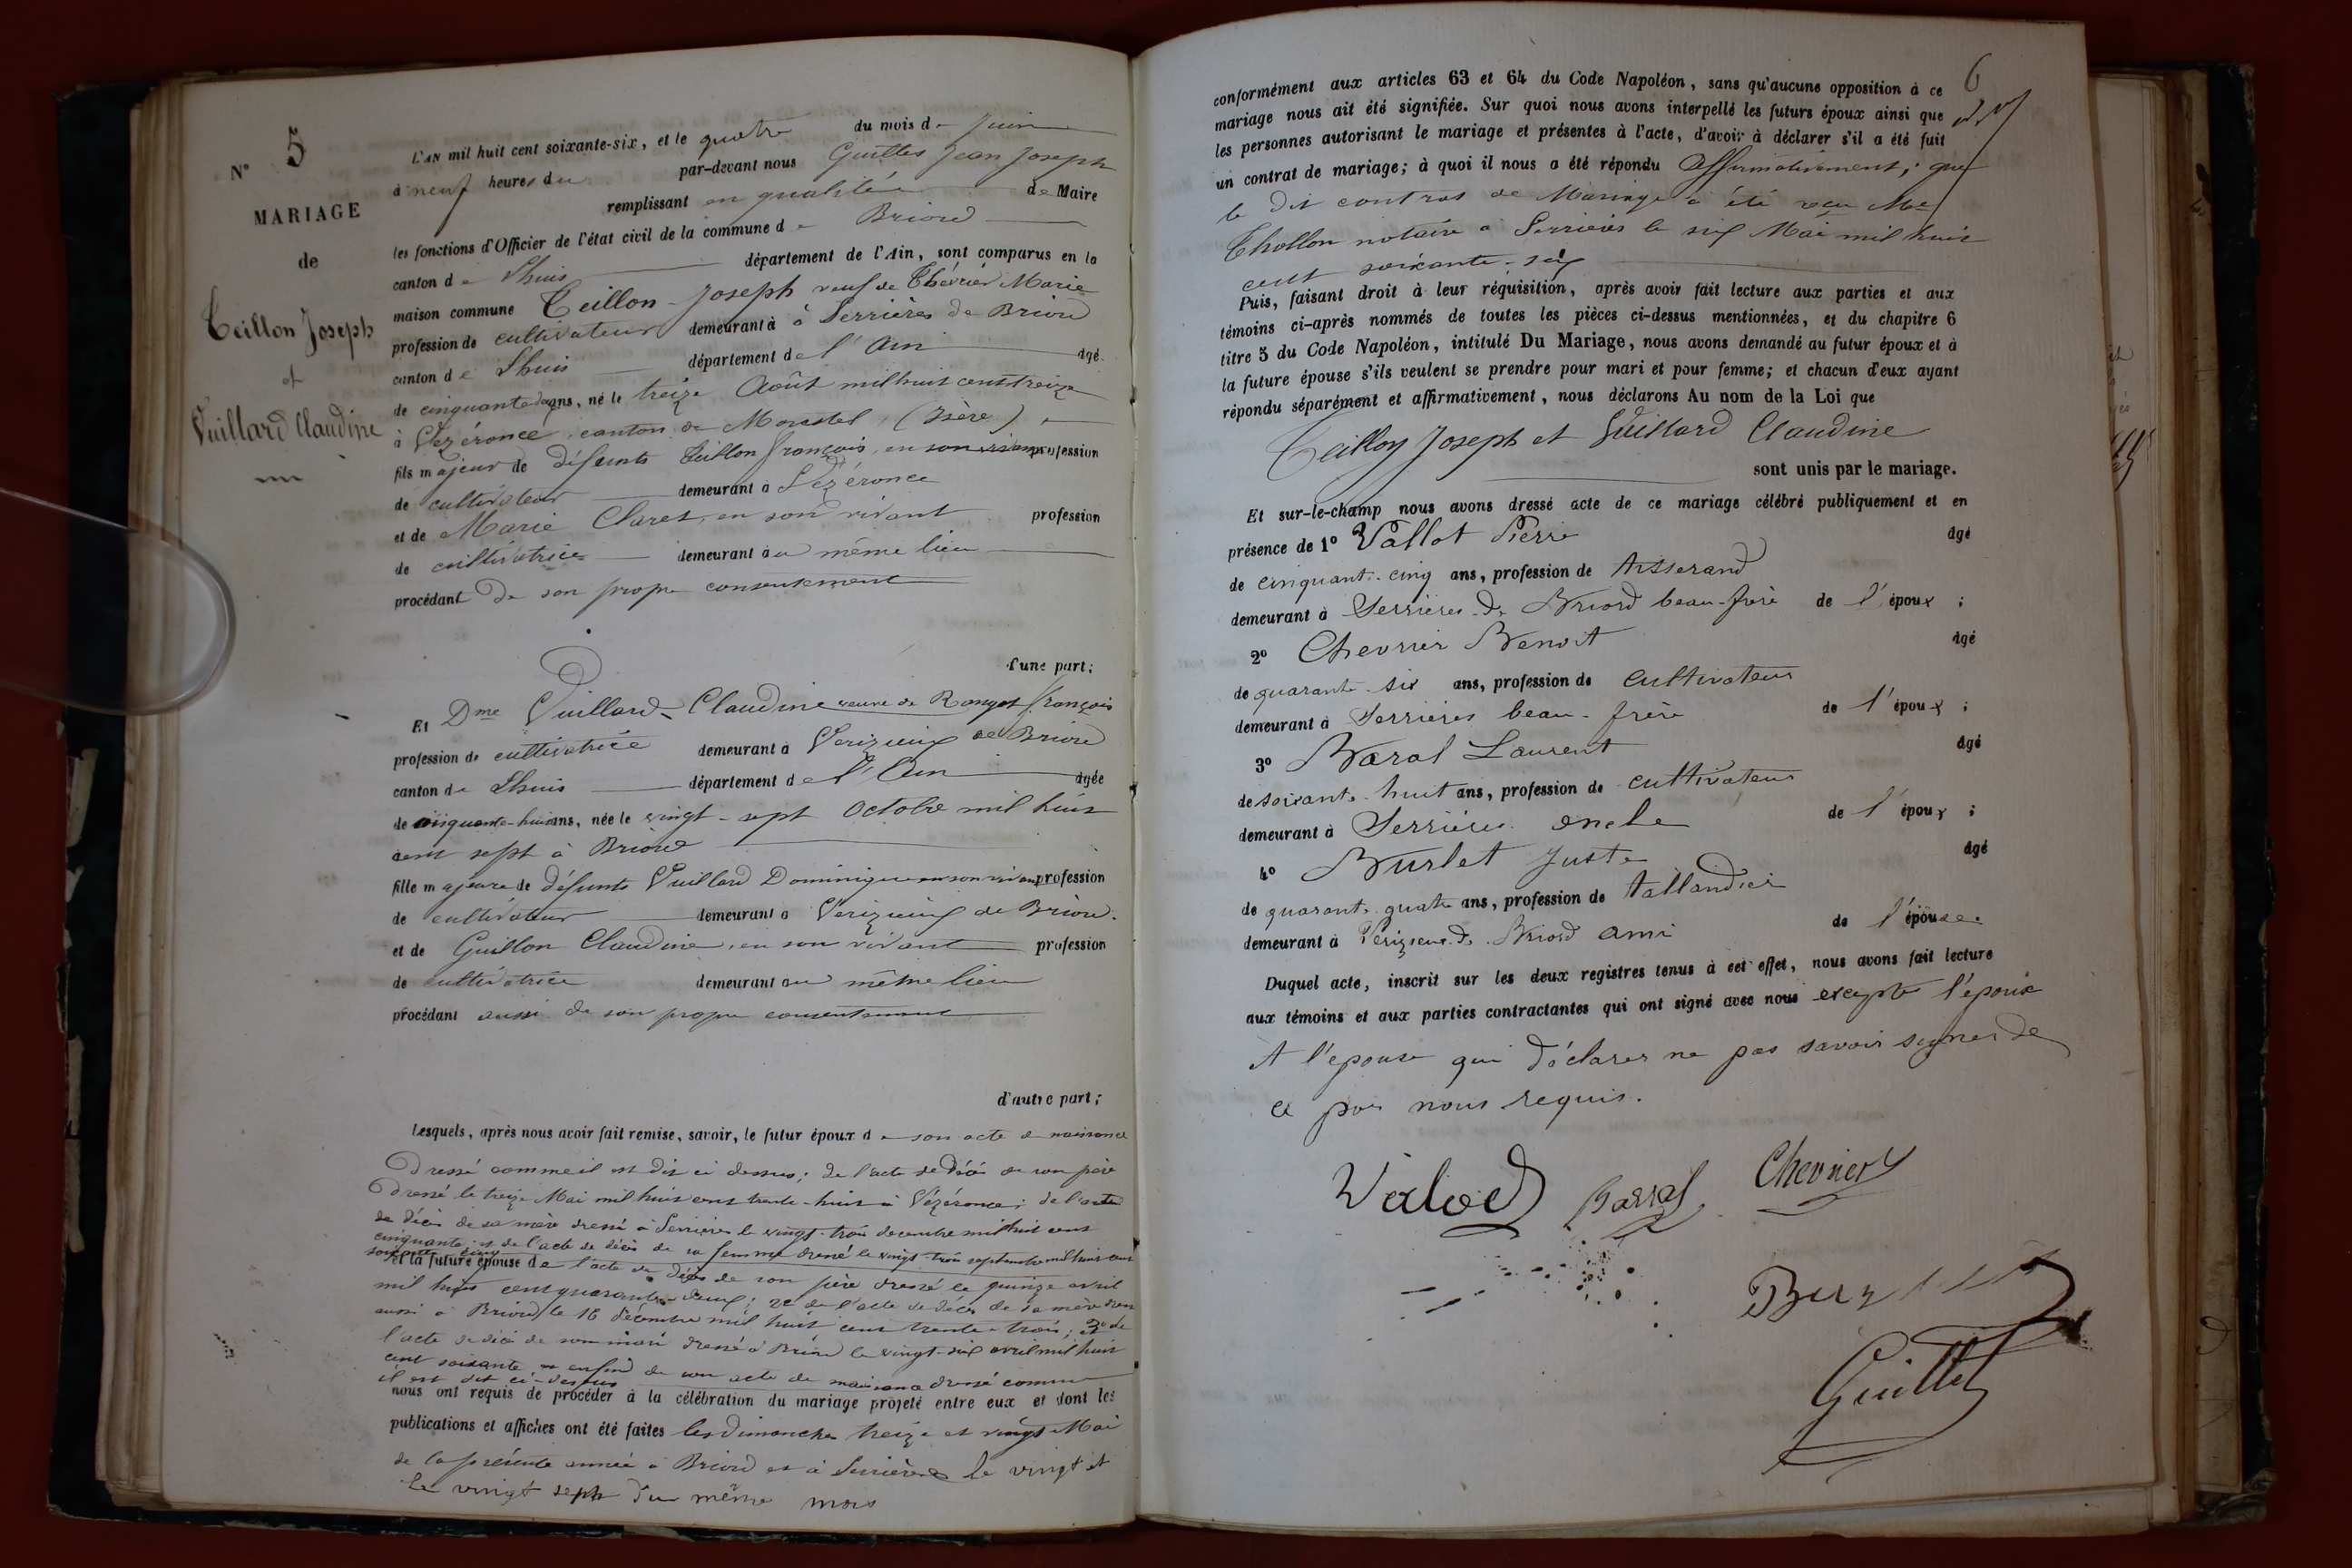 N° 5
MARIAGE
de
Teillon Joseph
et
Vuillard Claudine
L'AN mil huit cent soixante-six, et le quatre du mois de Juin
à neuf heures du par-devant nous Guillet Jean Joseph
remplissant en qualité de Maire
les fonctions d'Officier de l'état civil de la commune de Briord
canton de Lhuis département de l'Ain, sont comparus en la
maison commune Teillon Joseph veuf de Chévrier Marie
profession de cultivateur demeurant à à Serrières de Briord
canton de Lhuis département de l'Ain âgé
de cinquante ans, né le treize Août mil huit cent treize
à Vézéronce canton de Morestel (Isère)
fils majeur de défunts Teillon françois, en son vivant profession
de cultivateur demeurant à Vézéronce
et de Marie Claret, en son vivant profession
de cultivatrice demeurant au même lieu
procédant de son propre consentement
d'une part;
Et Dme Vuillard Claudine veuve de Ranget françois
profession de cultivatrice demeurant à Verizieux de Briord
canton de Lhuis département de l'Ain âgée
de cinquante-huit ans, née le vingt-sept Octobre mil huit
cent sept à Briord
fille majeure de défunts Vuillard Dominique en son vivant profession
de cultivateur demeurant à Verizieux de Briord.
et de Guillon Claudine, en son vivant profession
de cultivatrice demeurant au même lieu
procédant aussi de son propre consentement
d'autre part;
Lesquels, après nous avoir fait remise, savoir, le futur époux de son acte de naissance
Dressé comme il est dit ci dessus; de l'acte de décès de son père
Dressé le treize Mai mil huit cent trente-huit à Vézéronce; de l'acte
de décès de sa mère dressé à Serrières le vingt-trois decembre mil huit cent
cinquante; et de l'acte de décès de sa femme dressé le vingt-trois septembre mil huit cent
soixante cinq
et la future épouse de l'acte de décès de son père dressé le quinze avril
mil huit cent quarante-deux; 2° de l'acte de décès de sa mère dressé
aussi à Briord le 16 décembre mil huit cent trente-trois; 3° de
l'acte de décès de son mari dressé à Briord le vingt-six avril mil huit
cent soixante et enfin de son acte de naissance dressé comme
il est dit ci-dessus
nous ont requis de procéder à la célébration du mariage projeté entre eux et dont les
publications et affiches ont été faites les dimanches treize et vingt Mai
de la présente année à Briord et à Serrières le vingt et
le vingt sept du même mois
6
conformément aux articles 63 et 64 du Code Napoléon, sans qu'aucune opposition à ce
mariage nous ait été signifiée. Sur quoi nous avons interpellé les futurs époux ainsi que
les personnes autorisant le mariage et présentes à l'acte, d'avoir à déclarer s'il a été fait
un contrat de mariage; à quoi il nous a été répondu affirmativement; que
le dit contrat de Mariage a été reçu Me
Thollon notaire à Serrières le six Mai mil huit
cent soixante-six
Puis, faisant droit à leur réquisition, après avoir fait lecture aux parties et aux
témoins ci-après nommés de toutes les pièces ci-dessus mentionnées, et du chapitre 6
titre 5 du Code Napoléon, intitulé Du Mariage, nous avons demandé au futur époux et à
la future épouse s'ils veulent se prendre pour mari et pour femme; et chacun d'eux ayant
répondu séparément et affirmativement, nous déclarons Au nom de la Loi que
Teillon Joseph et Vuillard Claudine
sont unis par le mariage.
Et sur-le-champ nous avons dressé acte de ce mariage célébré publiquement et en
présence de 1° Vallot Pierre âgé
de cinquante-cinq ans, profession de tisserand
demeurant à Serrières de Briord beau-frère de l'époux;
2° Chevrier Benoit âgé
de quarante-six ans, profession de cultivateur
demeurant à Serrières beau-frère de l'époux;
3° Baral Laurent âgé
de soixante-huit ans, profession de cultivateur
demeurant à Serrières oncle de l'époux;
4° Burlet Juste âgé
de quarante quatre ans, profession de tallandier
demeurant à Verizieux de Briord ami de l'épouse.
Duquel acte, inscrit sur les deux registres tenus à cet effet, nous avons fait lecture
aux témoins et aux parties contractantes qui ont signé avec nous excepté l'époux
et l'épouse qui déclarer ne pas savoir signer de
ce par nous requis.
Valod Barral Chevrier
Guillet